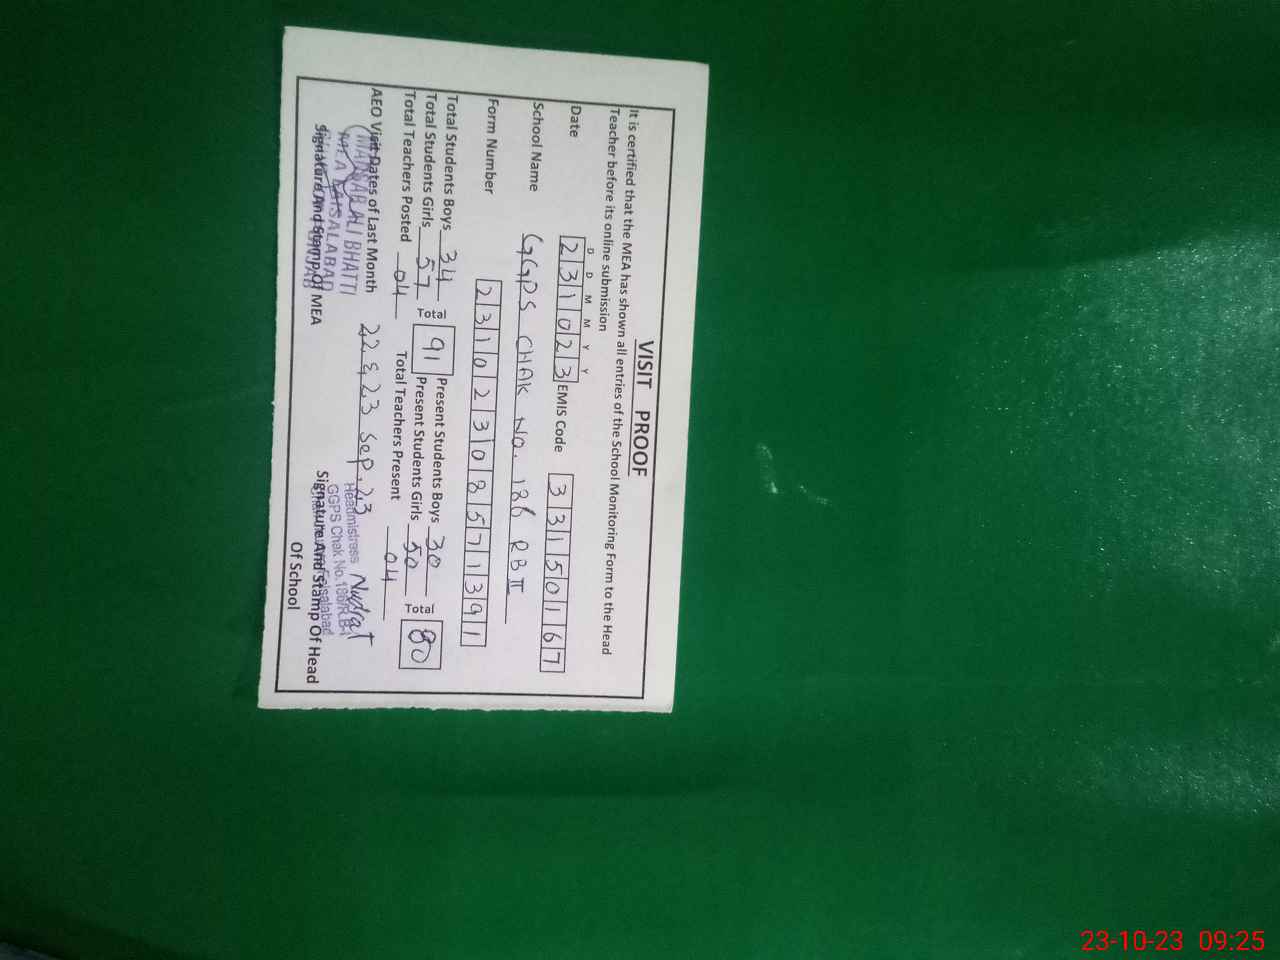 VISIT PROOF
It is certified that the MEA has shown all entries of the School Monitoring Form to the Head
Teacher before its online submission
D D M M Y Y
Date 2 3 1 0 2 3 EMIS Code 3 3 1 5 0 1 6 7
School Name GGPS CHAK NO. 186 RB II
Form Number 2 3 1 0 2 3 0 8 5 7 1 3 9 1
Total Students Boys 34 Total 91 Present Students Boys 30 Total 80
Total Students Girls 57 Present Students Girls 50
Total Teachers Posted 04 Total Teachers Present 04
AEO Visit Dates of Last Month 22 & 23 Sep. 23
ALI BHATTI
MEA FAISALABAD
Signature And Stamp Of MEA
Headmistress Nudrat
GGPS Chak No.186/R.B-I
Faisalabad
Signature And Stamp Of Head
Of School
23-10-23 09:25